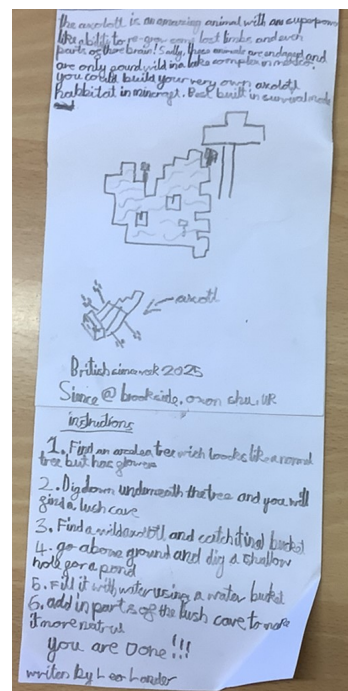 the axolotl is an amazing animal with an superpower
like ability to re-grow any lost limbs and even
parts of there brain! Sadly, these animals are endgaed and
are only found wild in a lake complex in mexico.
you could build your very own axolotl
habbitat in mincraft. Best built in survival mode
axotl
British sinc wek 2025
Sience @ brookside, oxon shu, UK
instructions
1. Find an azalea tree wich loocks like a normal
tree but has flowers
2. Dig down underneath the tree and you will
find a lush cave
3. Find a wild axolotl and catch it in a bucket
4. go above ground and dig a shallow
hole for a pond
5. Fill it with water using a water bucket
6. add in parts of the lush cave to make
it more natrul
you are Done!!!
writen by Leo